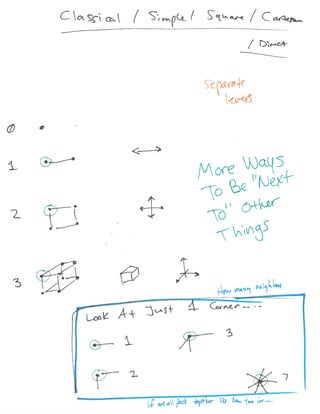 Classical / Simple / Square / Cartesian
/ Direct
Separate
levers
0
1
More Ways
To Be "Next
To" Other
Things
2
3
How many neighbors
Look At Just 1 Corner...
1
3
2
7
If we all pack together like how you can...